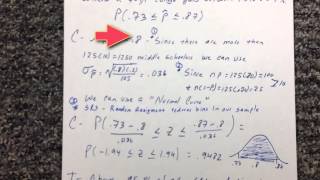 P(.73 ≤ p̂ ≤ .87)
C - .8 - Since there are more than
125(10) = 1250 middle schoolers we can use
σp̂ = √(.8)(.2)/125 = .036 Since np = 125(.8) = 100
+ n(1-p) = 125(.2) = 25 ≥10
We can use a "Normal Curve"
SRS - Random Assignment reduces bias in our sample
C - P(.73-.8/.036 ≤ z ≤ .87-.8/.036)
P(-1.94 ≤ z ≤ 1.94) = .9482
.73 .8 .87